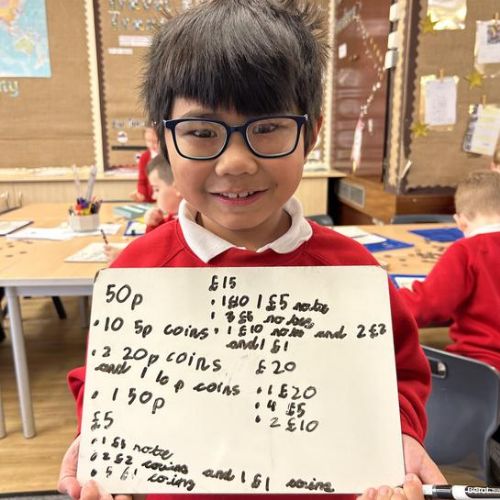 50p
• 10 5p coins
• 2 20p coins
and 1 10p coins
• 1 50p
£5
• 1 £5 note
• 2 £2 coins and 1 £1 coins
• 5 £1 coins
£15
• 1 £10 1 £5 note
• 3 £5 notes
• 1 £10 note and 2 £2
and 1 £1
£20
• 1 £20
• 4 £5
• 2 £10